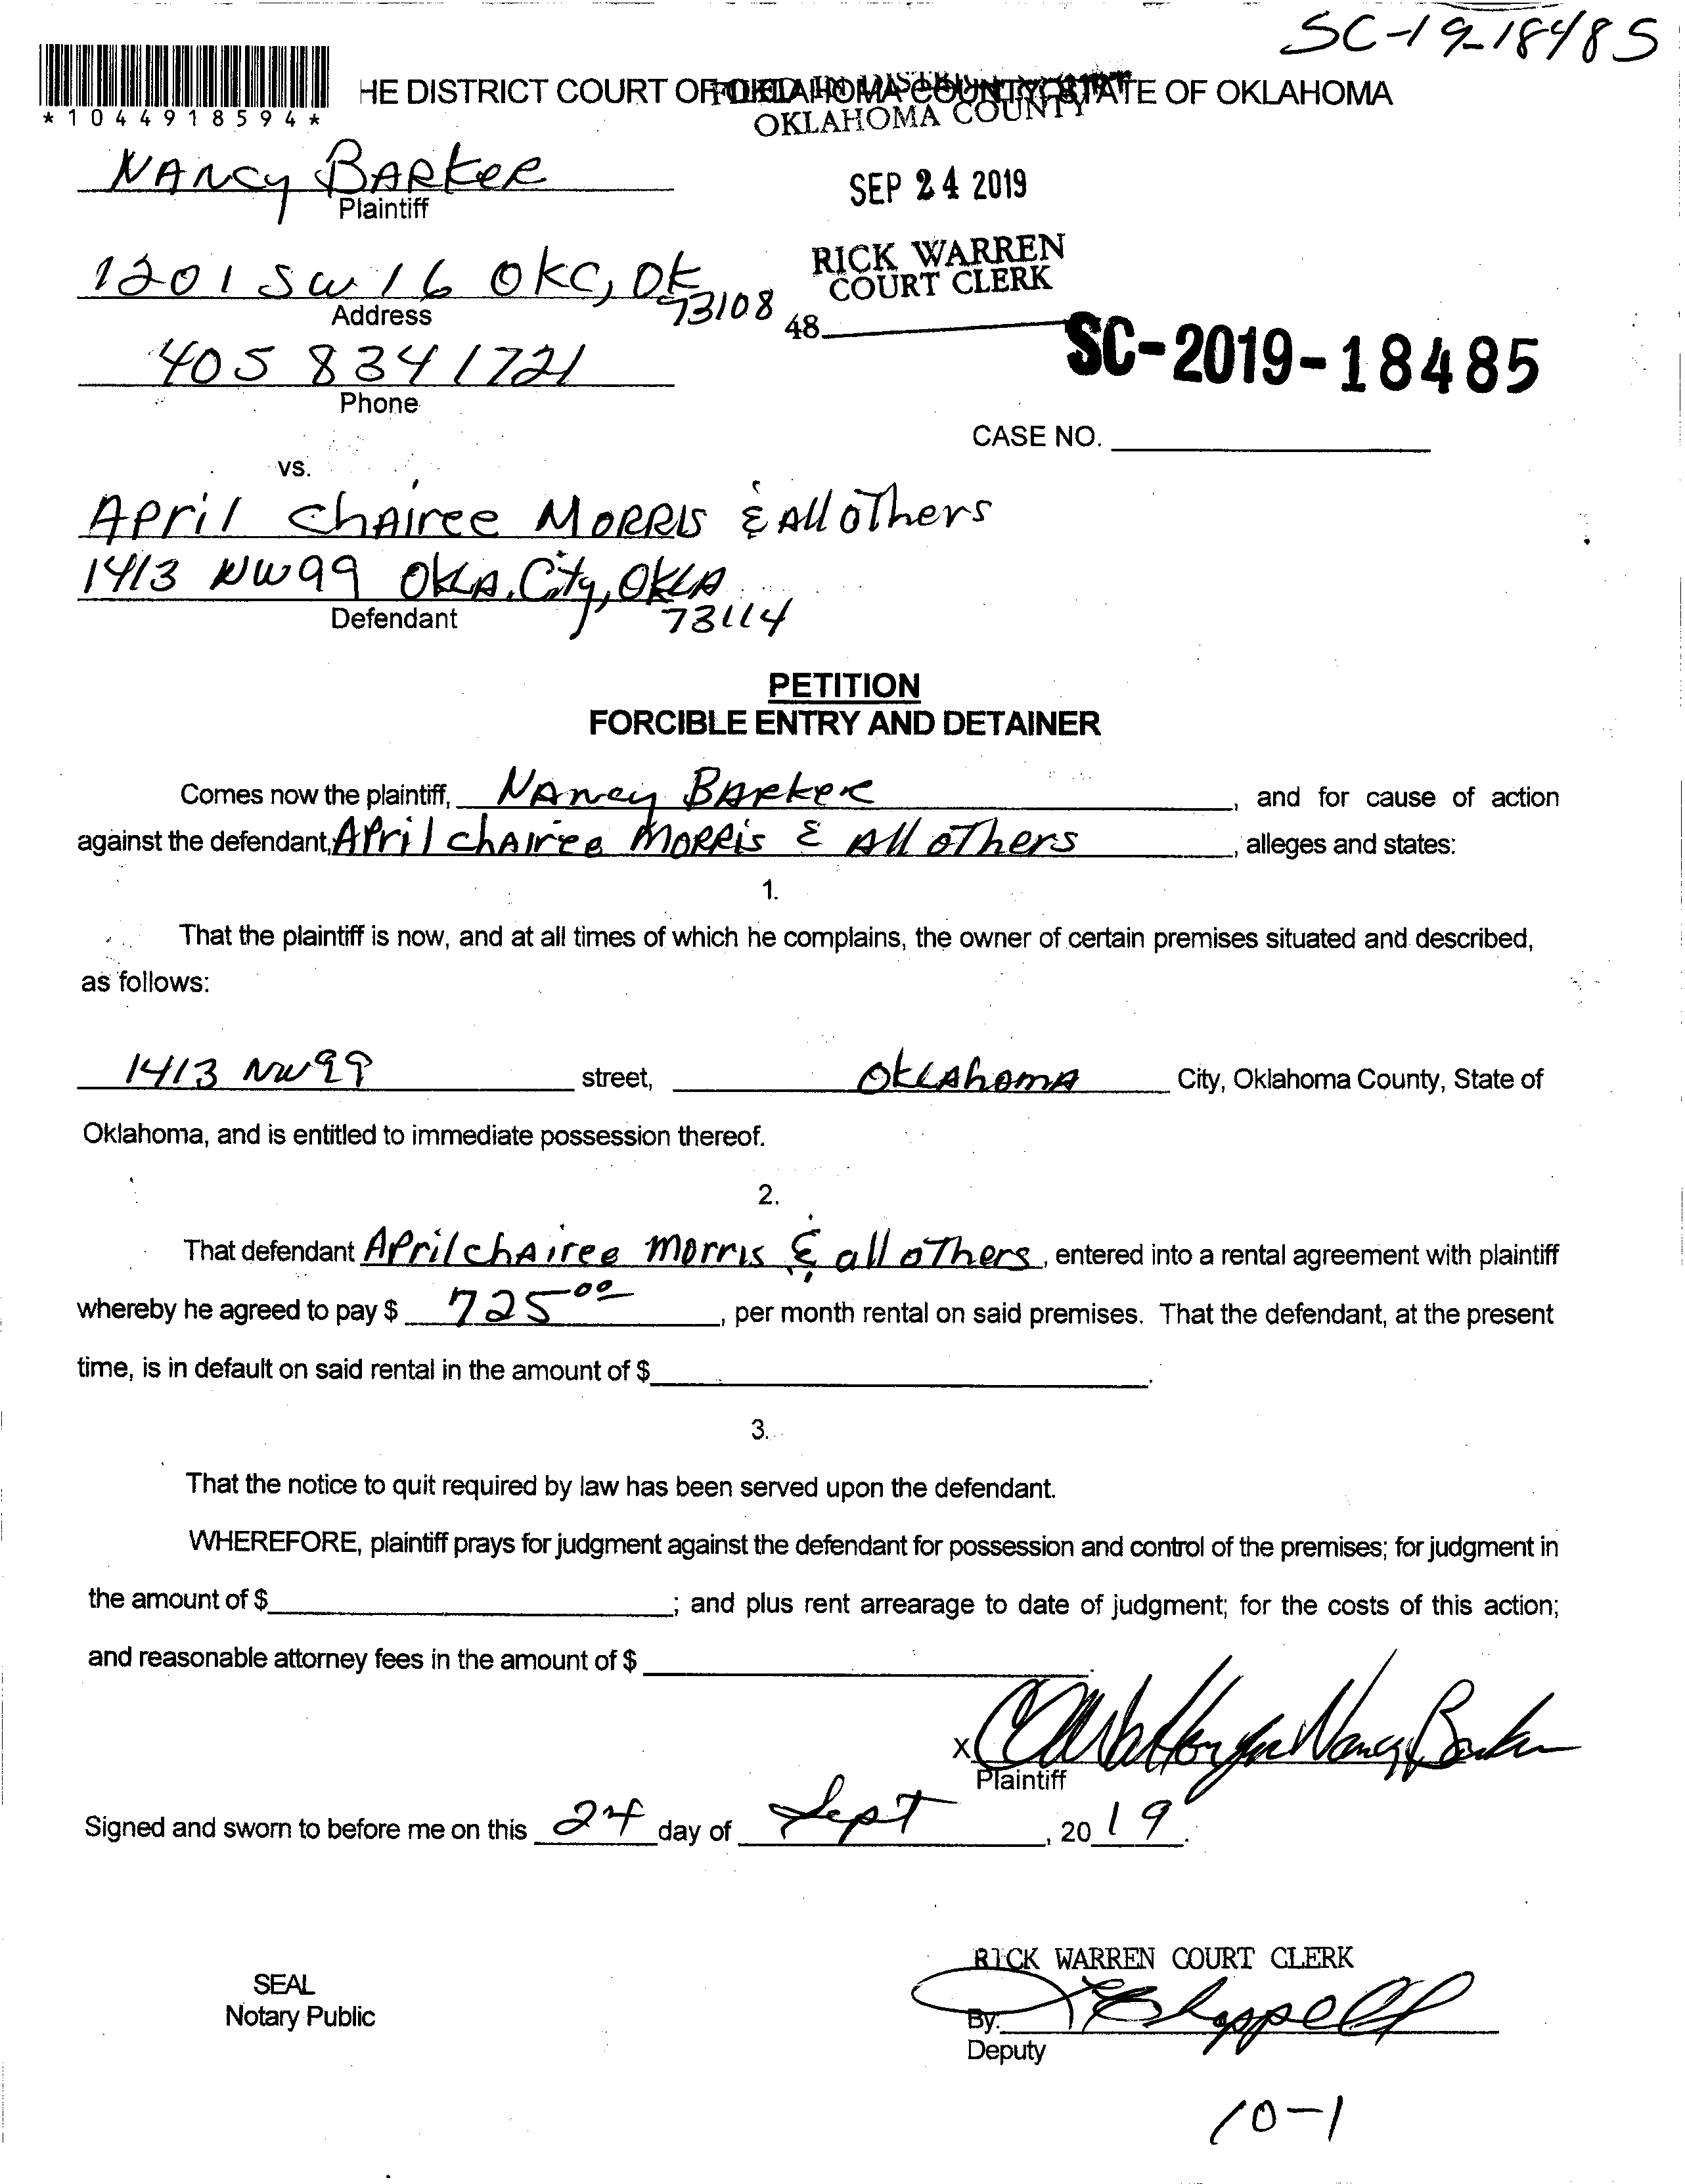 SC-19-18485
*1044918594*
HE DISTRICT COURT OF OKLAHOMA COUNTY, STATE OF OKLAHOMA
FILED IN DISTRICT COURT
OKLAHOMA COUNTY
NANCY BARKER
Plaintiff
SEP 24 2019
1201 SW 16 OKC, OK
73108
Address
RICK WARREN
COURT CLERK
48
405 834 1721
Phone
SC-2019-18485
CASE NO.
vs.
April ChAiree MORRIS & All oThers
1413 NW 99 OKLA. City, OKLA
73114
Defendant
PETITION
FORCIBLE ENTRY AND DETAINER
Comes now the plaintiff, NANCY BARKER, and for cause of action
against the defendant, April chAiree MORRis & All oThers, alleges and states:
1.
That the plaintiff is now, and at all times of which he complains, the owner of certain premises situated and described,
as follows:
1413 NW 99 street, OKLAhomA City, Oklahoma County, State of
Oklahoma, and is entitled to immediate possession thereof.
2.
That defendant April chAiree morris & all oThers, entered into a rental agreement with plaintiff
whereby he agreed to pay $ 725 00, per month rental on said premises. That the defendant, at the present
time, is in default on said rental in the amount of $.
3.
That the notice to quit required by law has been served upon the defendant.
WHEREFORE, plaintiff prays for judgment against the defendant for possession and control of the premises; for judgment in
the amount of $; and plus rent arrearage to date of judgment; for the costs of this action;
and reasonable attorney fees in the amount of $.
x for Nancy Barker
Plaintiff
Signed and sworn to before me on this 24 day of Sept, 2019.
RICK WARREN COURT CLERK
SEAL
Notary Public
By:
Deputy
10-1